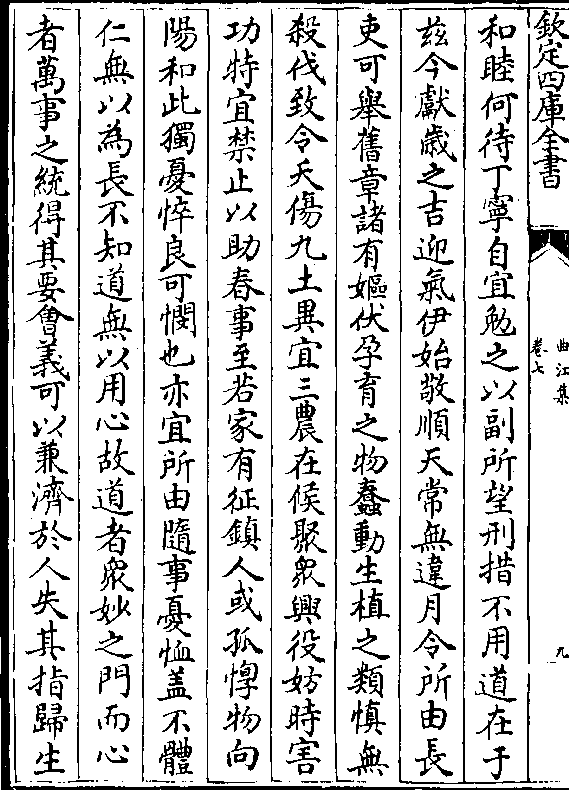 欽定四庫全書
曲江集
卷七
九
和睦何待丁寧自宜勉之以副所望刑措不用道在于
兹今獻歲之吉迎氣伊始敬順天常無違月令所由長
吏可舉舊章諸有嫗伏孕育之物蠢動生植之類慎無
殺伐致令夭傷九土異宜三農在候聚衆興役妨時害
功特宜禁止以助春事至若家有征鎮人或孤惸物向
陽和此獨憂悴良可憫也亦宜所由隨事憂恤盖不體
仁無以為長不知道無以用心故道者衆妙之門而心
者萬事之統得其要會義可以兼濟於人失其指歸生